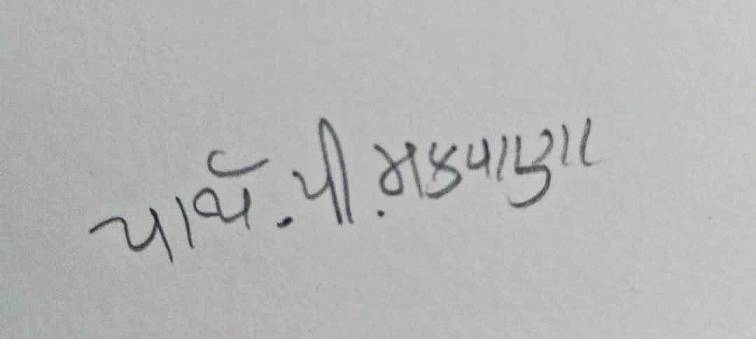 પાર્થ.પી.મકવાણા